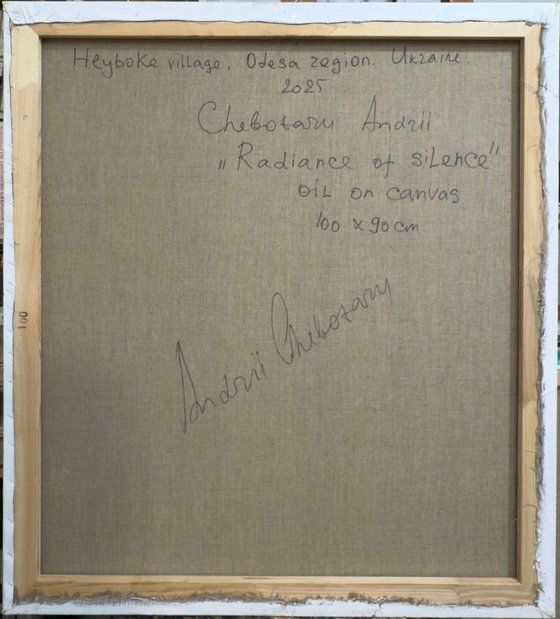 Heyboke village. Odesa region. Ukraine.
2025
Chebotaru Andrii
„Radiance of silence"
oil on canvas
100 x 90 cm
100
Andrii Chebotaru